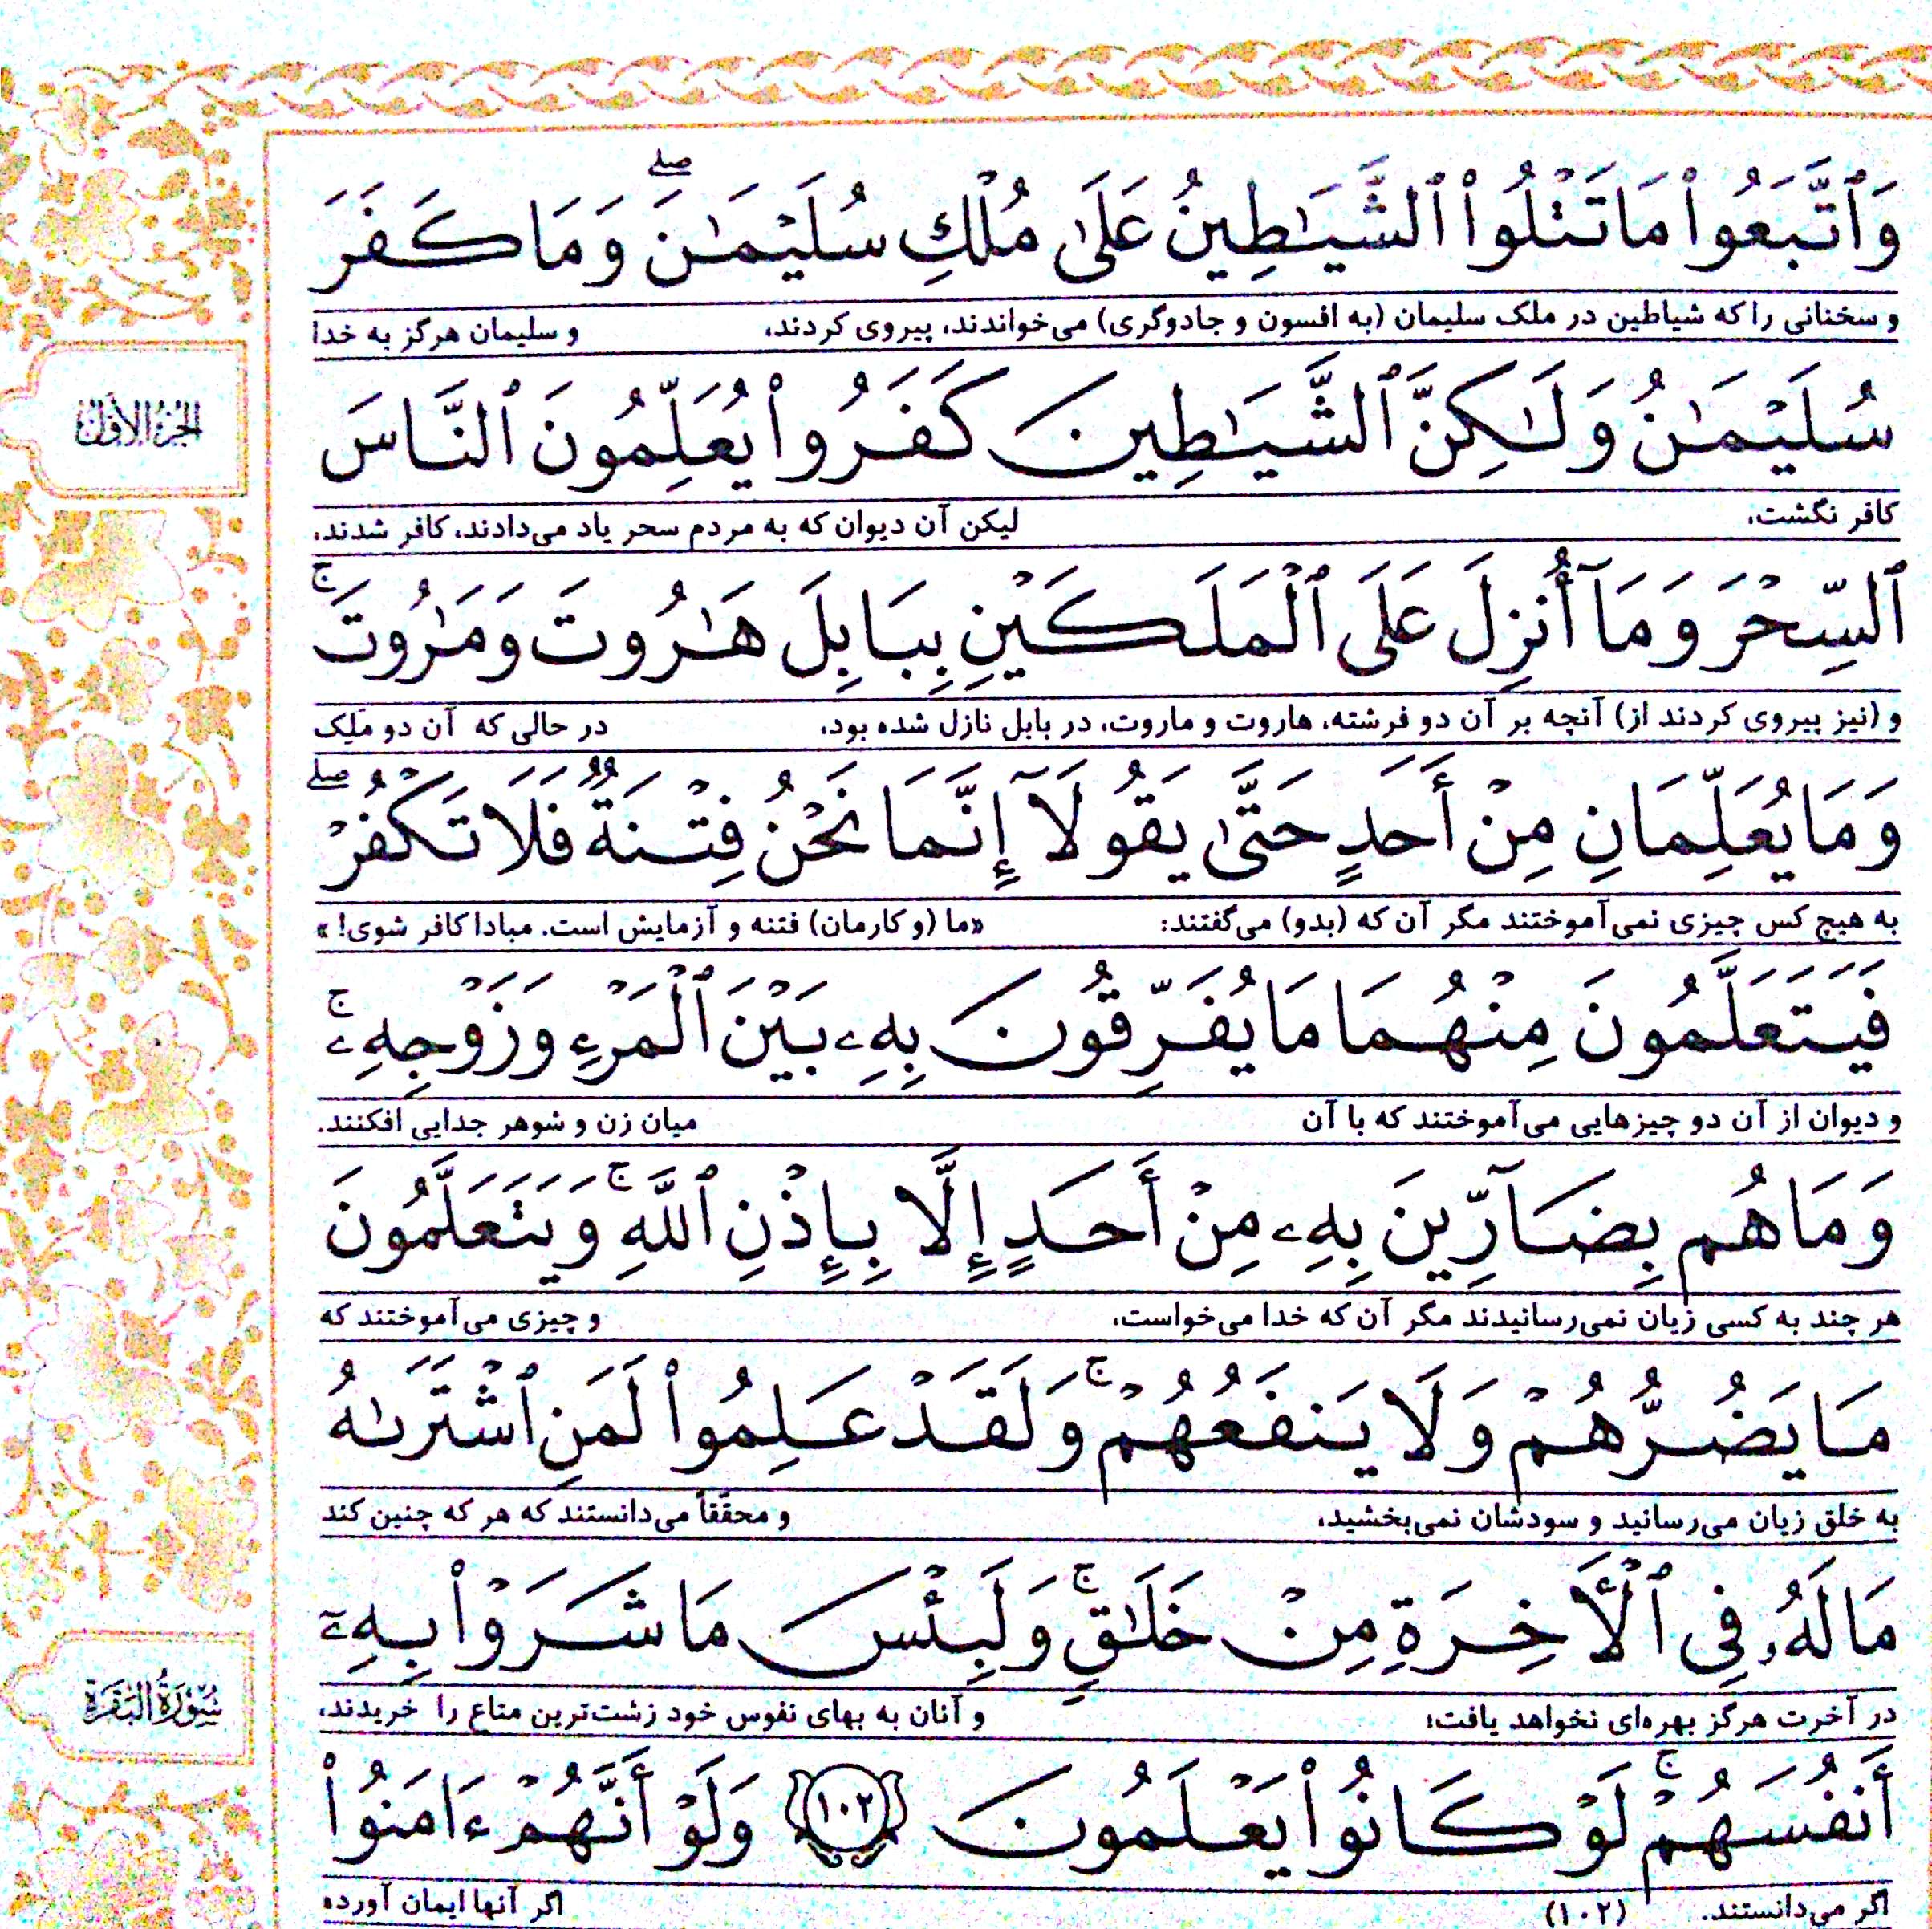 وَٱتَّبَعُوا۟ مَا تَتْلُوا۟ ٱلشَّيَـٰطِينُ عَلَىٰ مُلْكِ سُلَيْمَـٰنَ ۖ وَمَا كَفَرَ
و سخنانی را که شیاطین در ملک سلیمان (به افسون و جادوگری) می‌خواندند، پیروی کردند، و سلیمان هرگز به خدا
سُلَيْمَـٰنُ وَلَـٰكِنَّ ٱلشَّيَـٰطِينَ كَفَرُوا۟ يُعَلِّمُونَ ٱلنَّاسَ
الجزء الأول
کافر نگشت، لیکن آن دیوان که به مردم سحر یاد می‌دادند، کافر شدند،
ٱلسِّحْرَ وَمَآ أُنزِلَ عَلَى ٱلْمَلَكَيْنِ بِبَابِلَ هَـٰرُوتَ وَمَـٰرُوتَ ۚ
و (نیز پیروی کردند از) آنچه بر آن دو فرشته، هاروت و ماروت، در بابل نازل شده بود، در حالی که آن دو مَلِک
وَمَا يُعَلِّمَانِ مِنْ أَحَدٍ حَتَّىٰ يَقُولَآ إِنَّمَا نَحْنُ فِتْنَةٌ فَلَا تَكْفُرْ ۖ
به هیچ کس چیزی نمی‌آموختند مگر آن که (بدو) می‌گفتند: «ما (و کارمان) فتنه و آزمایش است. مبادا کافر شوی!»
فَيَتَعَلَّمُونَ مِنْهُمَا مَا يُفَرِّقُونَ بِهِۦ بَيْنَ ٱلْمَرْءِ وَزَوْجِهِۦ ۚ
و دیوان از آن دو چیزهایی می‌آموختند که با آن میان زن و شوهر جدایی افکنند.
وَمَا هُم بِضَآرِّينَ بِهِۦ مِنْ أَحَدٍ إِلَّا بِإِذْنِ ٱللَّهِ ۚ وَيَتَعَلَّمُونَ
هر چند به کسی زیان نمی‌رسانیدند مگر آن که خدا می‌خواست، و چیزی می‌آموختند که
مَا يَضُرُّهُمْ وَلَا يَنفَعُهُمْ ۚ وَلَقَدْ عَلِمُوا۟ لَمَنِ ٱشْتَرَىٰهُ
به خلق زیان می‌رسانید و سودشان نمی‌بخشید، و محقّقاً می‌دانستند که هر که چنین کند
مَا لَهُۥ فِى ٱلْـَٔاخِرَةِ مِنْ خَلَـٰقٍ ۚ وَلَبِئْسَ مَا شَرَوْا۟ بِهِۦٓ
سورة البقرة
در آخرت هرگز بهره‌ای نخواهد یافت؛ و آنان به بهای نفوس خود زشت‌ترین متاع را خریدند،
أَنفُسَهُمْ ۚ لَوْ كَانُوا۟ يَعْلَمُونَ ١٠٢ وَلَوْ أَنَّهُمْ ءَامَنُوا۟
اگر می‌دانستند. (۱۰۲) اگر آنها ایمان آورده